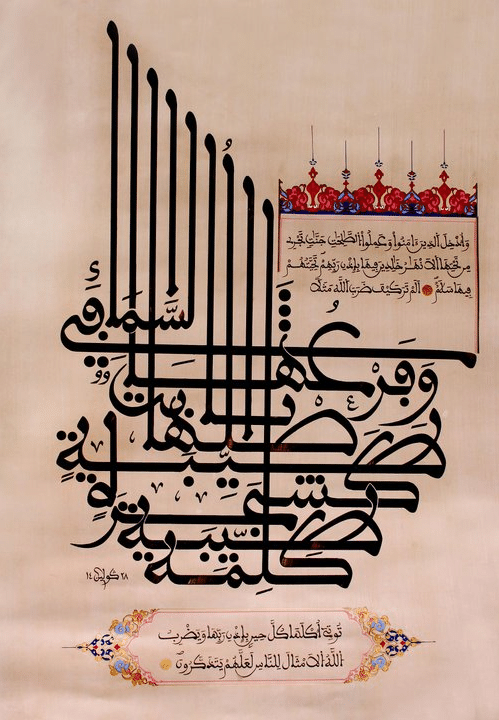 وَأُدْخِلَ الَّذِينَ ءَامَنُوا وَعَمِلُوا الصَّٰلِحَٰتِ جَنَّٰتٍ تَجْرِي
مِن تَحْتِهَا الْأَنْهَٰرُ خَٰلِدِينَ فِيهَا بِإِذْنِ رَبِّهِمْ تَحِيَّتُهُمْ
فِيهَا سَلَٰمٌ أَلَمْ تَرَ كَيْفَ ضَرَبَ اللَّهُ مَثَلًا
كَلِمَةً طَيِّبَةً
كَشَجَرَةٍ طَيِّبَةٍ
أَصْلُهَا ثَابِتٌ
وَفَرْعُهَا فِي السَّمَاءِ
تُؤْتِي أُكْلَهَا كُلَّ حِينٍ بِإِذْنِ رَبِّهَا وَيَضْرِبُ
اللَّهُ الْأَمْثَالَ لِلنَّاسِ لَعَلَّهُمْ يَتَذَكَّرُونَ